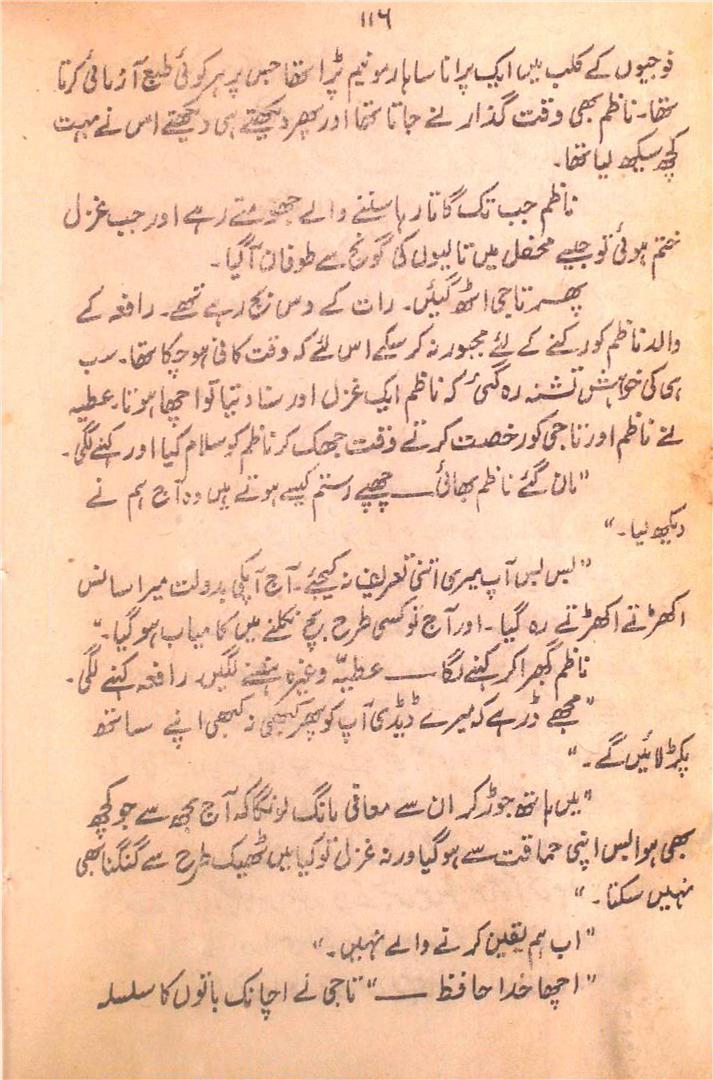 ۱۱۶
فوجیوں کے کلب میں ایک پرانا سا ہارمونیم پڑا تھا جس پر ہر کوئی طبع آزمائی کرتا
تھا۔ ناظم بھی وقت گذارنے جاتا تھا اور پھر دیکھتے ہی دیکھتے اس نے بہت
کچھ سیکھ لیا تھا۔
ناظم جب تک گاتا رہا سننے والے جھومتے رہے اور جب غزل
ختم ہوئی تو جیسے محفل میں تالیوں کی گونج سے طوفان آگیا۔
پھر تاجی اٹھ گئیں۔ رات کے دس بج رہے تھے۔ رافعہ کے
والد ناظم کو رکنے کے لئے مجبور نہ کر سکے اس لئے کہ وقت کافی ہو چکا تھا۔ سب
ہی کی خواہش تشنہ رہ گئی کہ ناظم ایک غزل اور سنا دیتا تو اچھا ہوتا۔ عطیہ
نے ناظم اور تاجی کو رخصت کرتے وقت جھک کر ناظم کو سلام کیا اور کہنے لگی۔
"مان گئے ناظم بھائی ــــ چھپے رستم کیسے ہوتے ہیں وہ آج ہم نے
دیکھ لیا۔"
"بس بس آپ میری اتنی تعریف نہ کیجئے۔ آج آپکی بدولت میرا سانس
اکھڑتے اکھڑتے رہ گیا۔ اور آج تو کسی طرح بچ نکلنے میں کامیاب ہوگیا۔"
ناظم گھبرا کر کہنے لگا ــــ عطیّہ وغیرہ ہنسنے لگیں۔ رافعہ کہنے لگی۔
"مجھے ڈر ہے کہ میرے ڈیڈی آپ کو پھر کبھی نہ کبھی اپنے ساتھ
پکڑ لائیں گے۔"
"میں ہاتھ جوڑ کر ان سے معافی مانگ لونگا کہ آج مجھ سے جو کچھ
بھی ہوا بس اپنی حماقت سے ہوگیا ورنہ غزل تو کیا میں ٹھیک طرح سے گنگنا بھی
نہیں سکتا۔"
"اب ہم یقین کرنے والے نہیں۔"
"اچھا خدا حافظ ــــ" تاجی نے اچانک باتوں کا سلسلہ